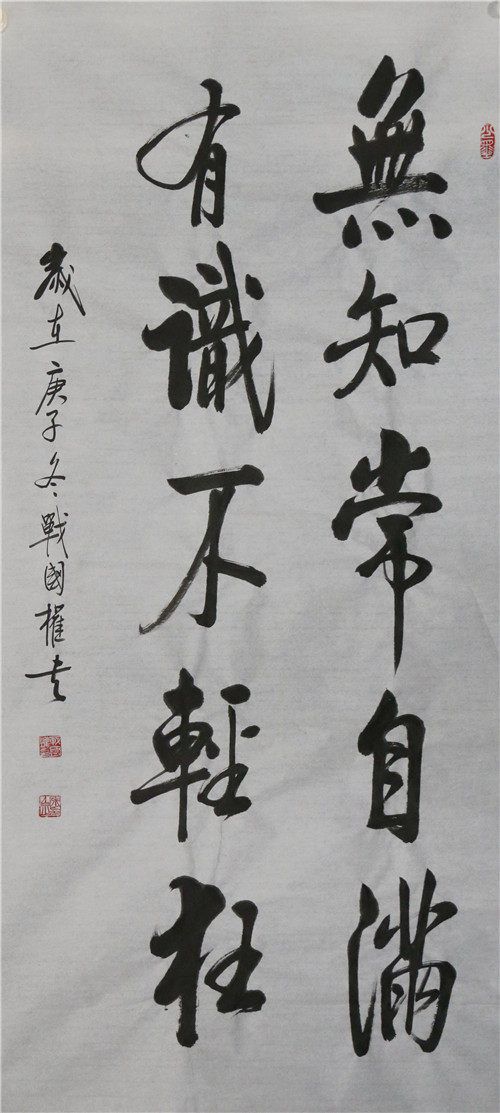 無知常自滿
有識不輕枉
歲在庚子冬戰國權书